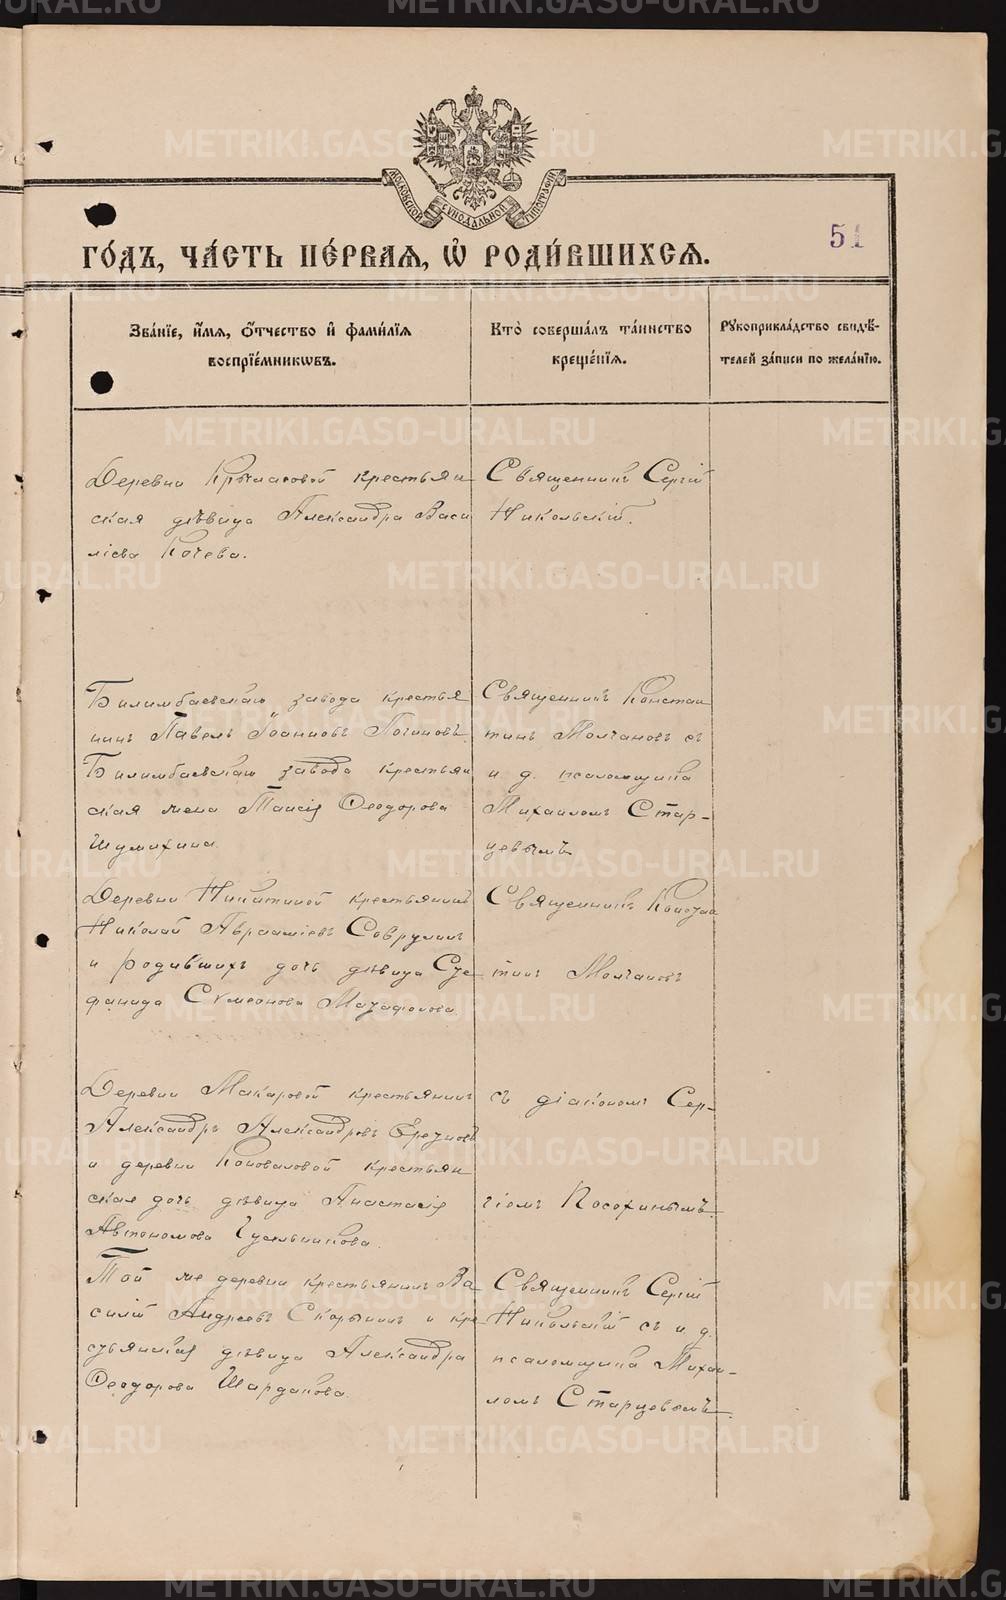 МОСКОВСКОЙ СѴНОДАЛЬНОЙ ТИПОГРАФІИ
51
го́дъ, ча́сть пе́рваѧ, ѽ роди́вшихсѧ.
Зва́нїе, и҆́мѧ, ѻ҆́тчество и҆ фамн́лїѧ
воспрїе́мникѡвъ.
Кто̀ соверша́лъ та́инство
креще́нїѧ.
Рꙋкоприкла́дство свидѣ́-
телей за́писи по жела́нїю.
Деревни крестьян
ская дѣвица Александра Васи
ліева Кочева.
Священникъ Сергій
Никольскій.
Билимбаевскаго завода крестья
нинъ Павелъ Іоанновъ Логиновъ.
Билимбаевскаго завода крестьян
ская жена Таисія Ѳеодорова
Шумихина.
Священникъ Констан
тинъ Молчановъ съ
и д. псаломщика
Михаиломъ Стар-
цевымъ
Деревни Никитиной крестьянинъ
Николай Авраамі­евъ
и дочь дѣвица
Сѵмеонова
Священникъ Констан
тинъ Молчановъ
Деревни Макаровой крестьянинъ
Александръ Александровъ
и деревни Коноваловой крестьян
ская дочь дѣвица Анастасія
Автономова Гусельникова.
съ діакономъ Сер-
гіемъ Посохинымъ.
Той же деревни крестьянинъ Ва
силій Андреевъ Скорынинъ и кре
стьянская дѣвица Александра
Ѳеодорова Шардакова.
Священникъ Сергій
Никольскій съ и. д.
псаломщика Михаи-
ломъ Старцевымъ.
METRIKI.GASO-URAL.RU